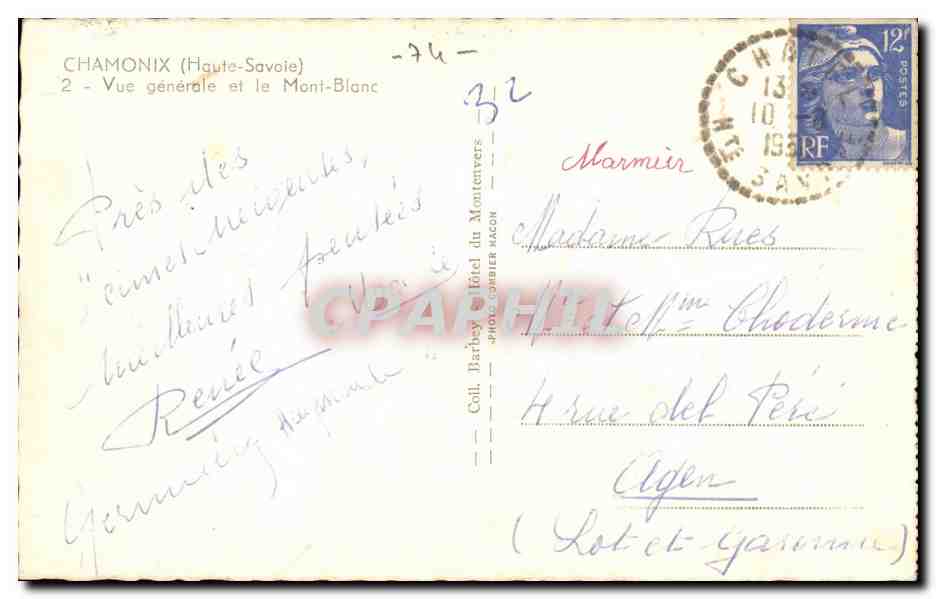 CHAMONIX (Haute-Savoie)
2 - Vue générale et le Mont-Blanc
-74-
32
12F
POSTES
RF
13
10
HTE SAV
Marmier
Près des
cimes neigeuses,
meilleures pensées
Renée
Coll. Barbey, Hôtel du Montenvers
PHOTO COMBIER MACON
CPAPHIL
Madame Rues
et Mme
4 rue del Péré
Agen
(Lot et Garonne)